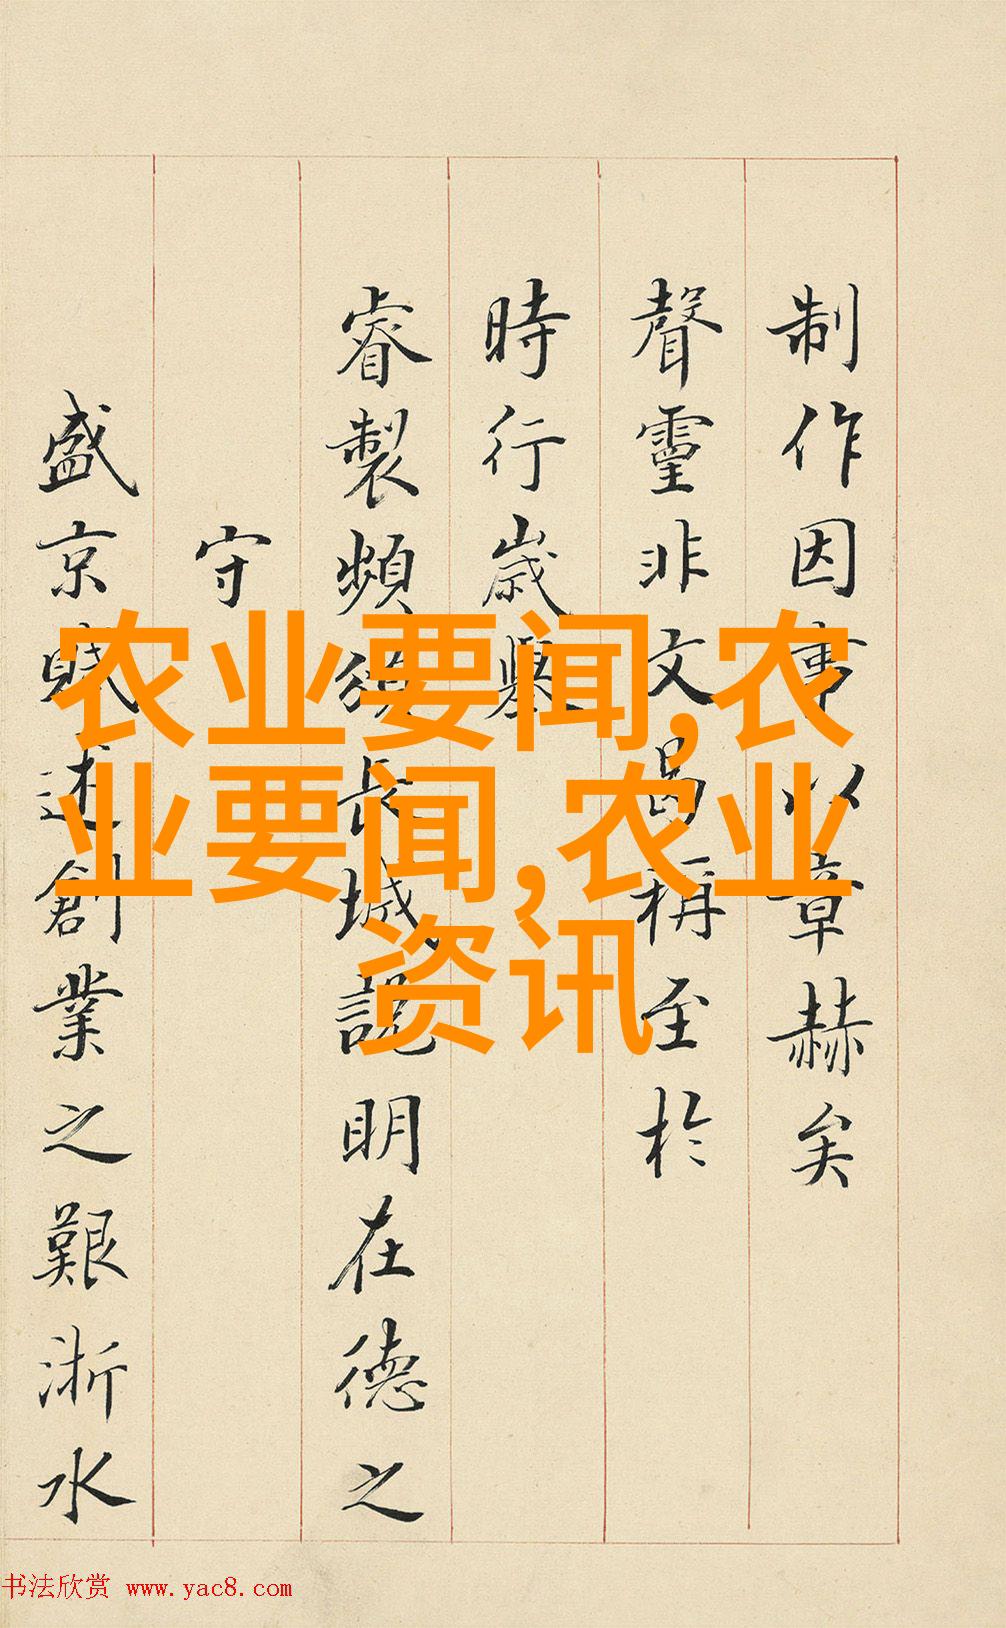 制作因事以章赫矣
聲靈非文曷稱至於
時行歲舉
睿製頻長城說明在德之
守
盛京賦述創業之艱淅水
农业要闻,农
业要闻,农业
资讯
书法欣赏 www.yac8.com